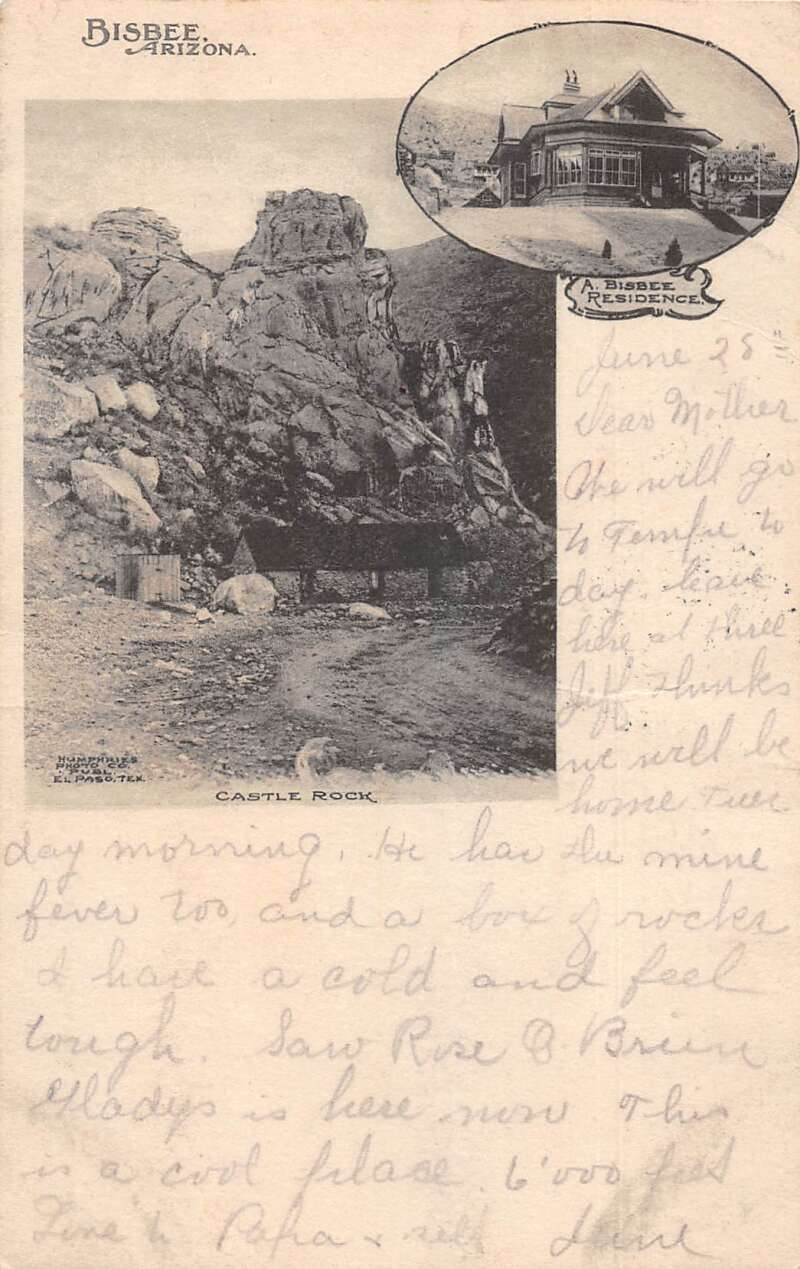 BISBEE,
ARIZONA.
A. BISBEE
RESIDENCE.
June 28
Dear Mother
We will go
to Tempe to
day. leave
here at three
Jiff thinks
we will be
home Tues
day morning. He has the mine
fever too, and a box of rocks
I have a cold and feel
tough. Saw Rose O Brien
Gladys is here now This
is a cool place. 6'000 feet
Love to Papa & self
HUMPHRIES
PHOTO CO.
PUBL.
EL PASO, TEX.
CASTLE ROCK